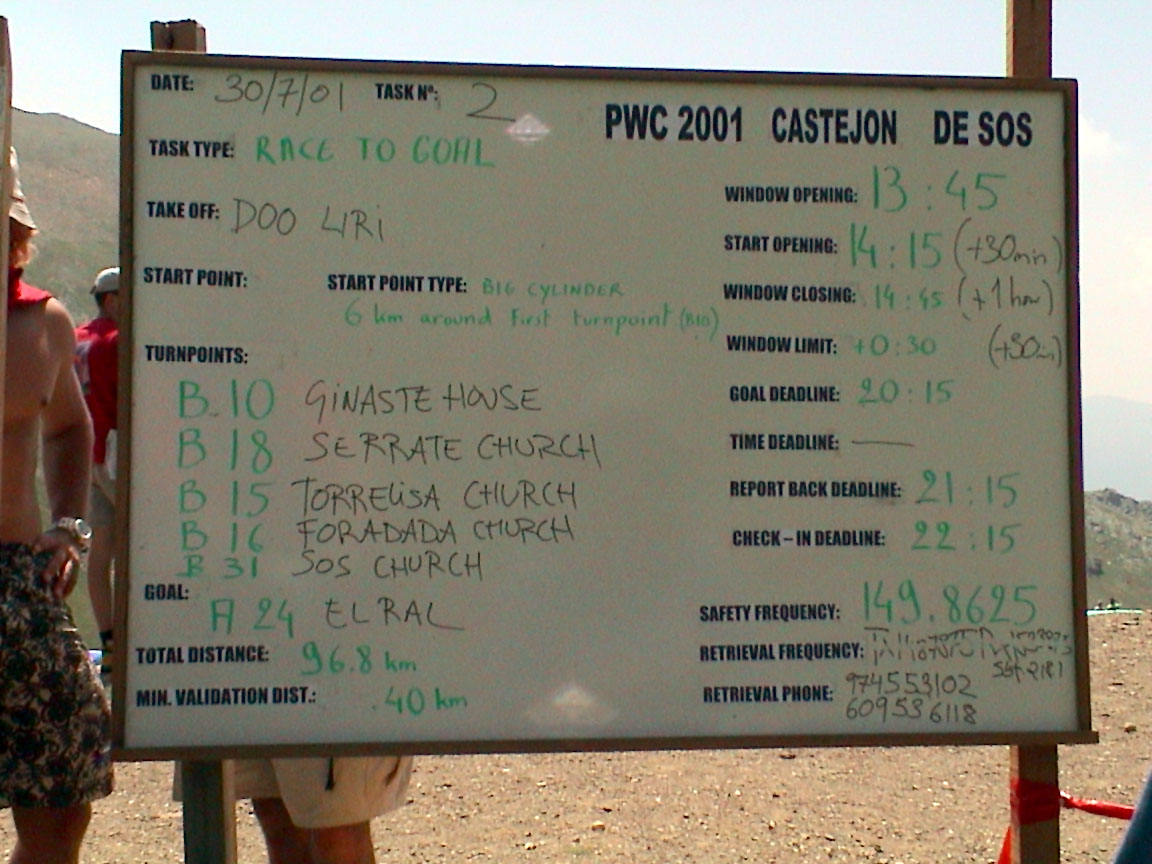 DATE: 30/7/01 TASK Nº: 2
PWC 2001 CASTEJON DE SOS
TASK TYPE: RACE TO GOAL
TAKE OFF: DOO LIRI
START POINT: START POINT TYPE: BIG CYLINDER
6 km around first turnpoint (B10)
TURNPOINTS:
B 10 GINASTE HOUSE
B 18 SERRATE CHURCH
B 15 TORRELISA CHURCH
B 16 FORADADA CHURCH
B 31 SOS CHURCH
GOAL:
A 24 EL RAL
TOTAL DISTANCE: 96.8 km
MIN. VALIDATION DIST.: 40 km
WINDOW OPENING: 13:45
START OPENING: 14:15 (+30min)
WINDOW CLOSING: 14:45 (+1 hour)
WINDOW LIMIT: +0:30 (+30min)
GOAL DEADLINE: 20:15
TIME DEADLINE: —
REPORT BACK DEADLINE: 21:15
CHECK–IN DEADLINE: 22:15
SAFETY FREQUENCY: 149.8625
RETRIEVAL FREQUENCY:
RETRIEVAL PHONE: 974553102
609536118